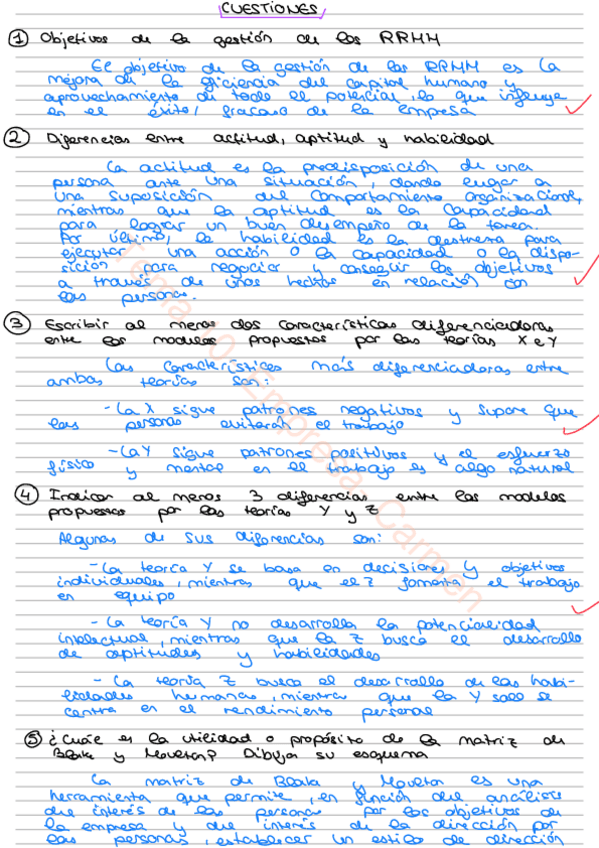 CUESTIONES
1 Objetivos de la gestión de los RRHH
El objetivo de la gestión de los RRHH es la
mejora de la eficiencia del capital humano y
aprovechamiento de todo el potencial, lo que influye
en el éxito/fracaso de la empresa
2 Diferencias entre actitud, aptitud y habilidad
La actitud es la predisposición de una
persona ante una situación, dando lugar a
una suposición del comportamiento organizacional,
mientras que la aptitud es la capacidad
para lograr un buen desempeño de la tarea.
Por último, la habilidad es la destreza para
ejecutar una acción o la capacidad o la dispo-
sición para negociar y conseguir los objetivos
a través de unos hechos en relación con
las personas.
3 Escribir al menos dos características diferenciadoras
entre los modelos propuestos por las teorías X e Y
Las características más diferenciadoras entre
ambas teorías son:
- La X sigue patrones negativos y supone que
las personas evitarán el trabajo
- La Y sigue patrones positivos y el esfuerzo
físico y mental en el trabajo es algo natural
4 Indicar al menos 3 diferencias entre los modelos
propuestos por las teorías Y y Z
Algunas de sus diferencias son:
- La teoría Y se basa en decisiones y objetivos
individuales, mientras que el Z fomenta el trabajo
en equipo
- La teoría Y no desarrolla la potencialidad
intelectual, mientras que la Z busca el desarrollo
de aptitudes y habilidades
- La teoría Z busca el desarrollo de las habi-
lidades humanas, mientras que la Y solo se
centra en el rendimiento personal
5 ¿Cuál es la utilidad o propósito de la matriz de
Blake y Mouton? Dibuja su esquema
La matriz de Blake y Mouton es una
herramienta que permite, en función del análisis
del interés de las personas por los objetivos de
la empresa y del interés de la dirección por
las personas, establecer un estilo de dirección
Tema 10 Empresa Carmen